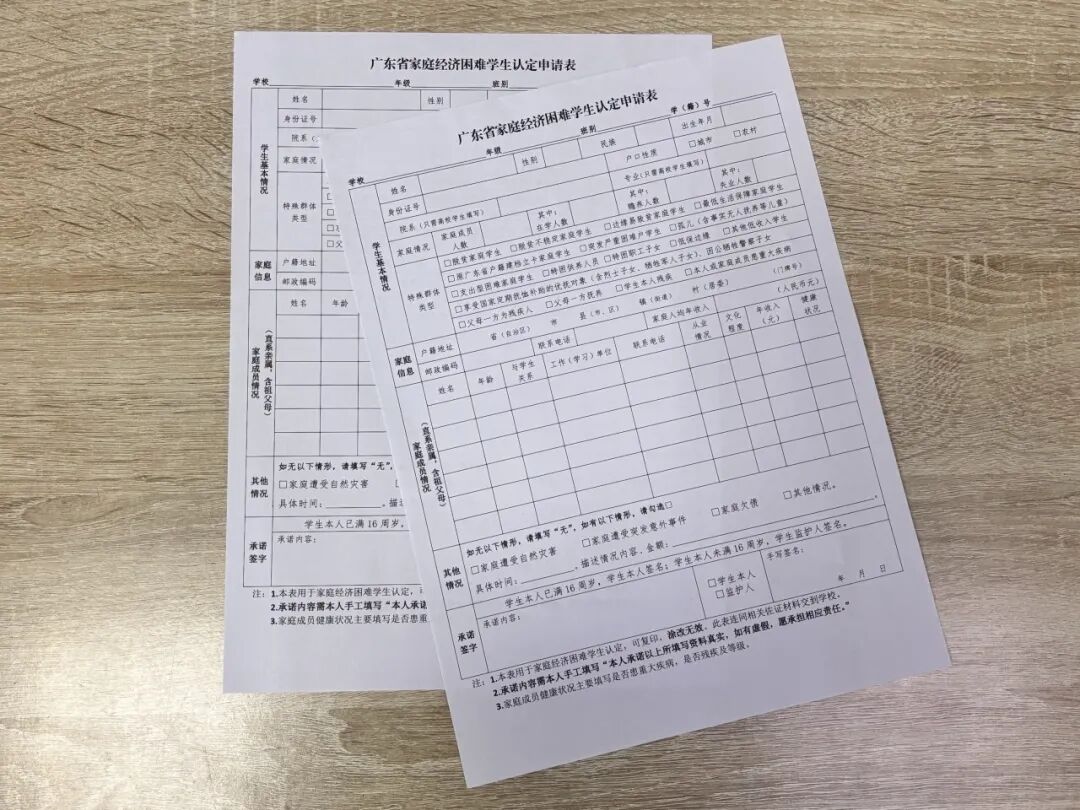 广东省家庭经济困难学生认定申请表
学校 年级 班别
学生基本情况
姓名 性别
身份证号
院系
家庭情况
特殊群体类型
家庭信息
户籍地址
邮政编码
家庭成员情况（直系亲属，含祖父母）
姓名 年龄
其他情况
如无以下情形，请填写“无”，
□家庭遭受自然灾害
具体时间：
学生本人已满 16 周岁，
承诺签字
承诺内容：
注：1.本表用于家庭经济困难学生认定，
2.承诺内容需本人手工填写“本人承诺
3.家庭成员健康状况主要填写是否患重
广东省家庭经济困难学生认定申请表
学校 年级 班别 学（籍）号
学生基本情况
姓名 性别 民族 出生年月
身份证号 户口性质 □城市 □农村
院系（只需高校学生填写） 专业（只需高校学生填写）
家庭情况 家庭成员人数 其中：在学人数 其中：赡养人数 其中：失业人数
特殊群体类型
□脱贫家庭学生 □脱贫不稳定家庭学生 □边缘易致贫家庭学生 □最低生活保障家庭学生
□原广东省户籍建档立卡家庭学生 □突发严重困难户学生 □孤儿（含事实无人抚养等儿童）
□支出型困难家庭学生 □特困供养人员 □特困职工子女 □低保边缘 □其他低收入学生
□享受国家定期抚恤补助的优抚对象（含烈士子女、牺牲军人子女）、因公牺牲警察子女
□父母一方为残疾人 □父母一方抚养 □学生本人残疾 □本人或家庭成员患重大疾病
家庭信息
户籍地址 省（自治区） 市 县（市、区） 镇（街道） 村（居委） （门牌号）
邮政编码 联系电话 家庭人均年收入 （人民币元）
家庭成员情况（直系亲属，含祖父母）
姓名 年龄 与学生关系 工作（学习）单位 联系电话 从业情况 文化程度 年收入（元） 健康状况
其他情况
如无以下情形，请填写“无”，如有以下情形，请勾选□
□家庭遭受自然灾害 □家庭遭受突发意外事件 □家庭欠债 □其他情况。
具体时间： ，描述情况内容、金额： 。
学生本人已满 16 周岁，学生本人签名；学生本人未满 16 周岁，学生监护人签名。
承诺签字
承诺内容：
□学生本人
□监护人
手写签名：
年 月 日
注：1.本表用于家庭经济困难学生认定，可复印，涂改无效。此表连同相关佐证材料交到学校。
2.承诺内容需本人手工填写“本人承诺以上所填写资料真实，如有虚假，愿承担相应责任。”
3.家庭成员健康状况主要填写是否患重大疾病，是否残疾及等级。